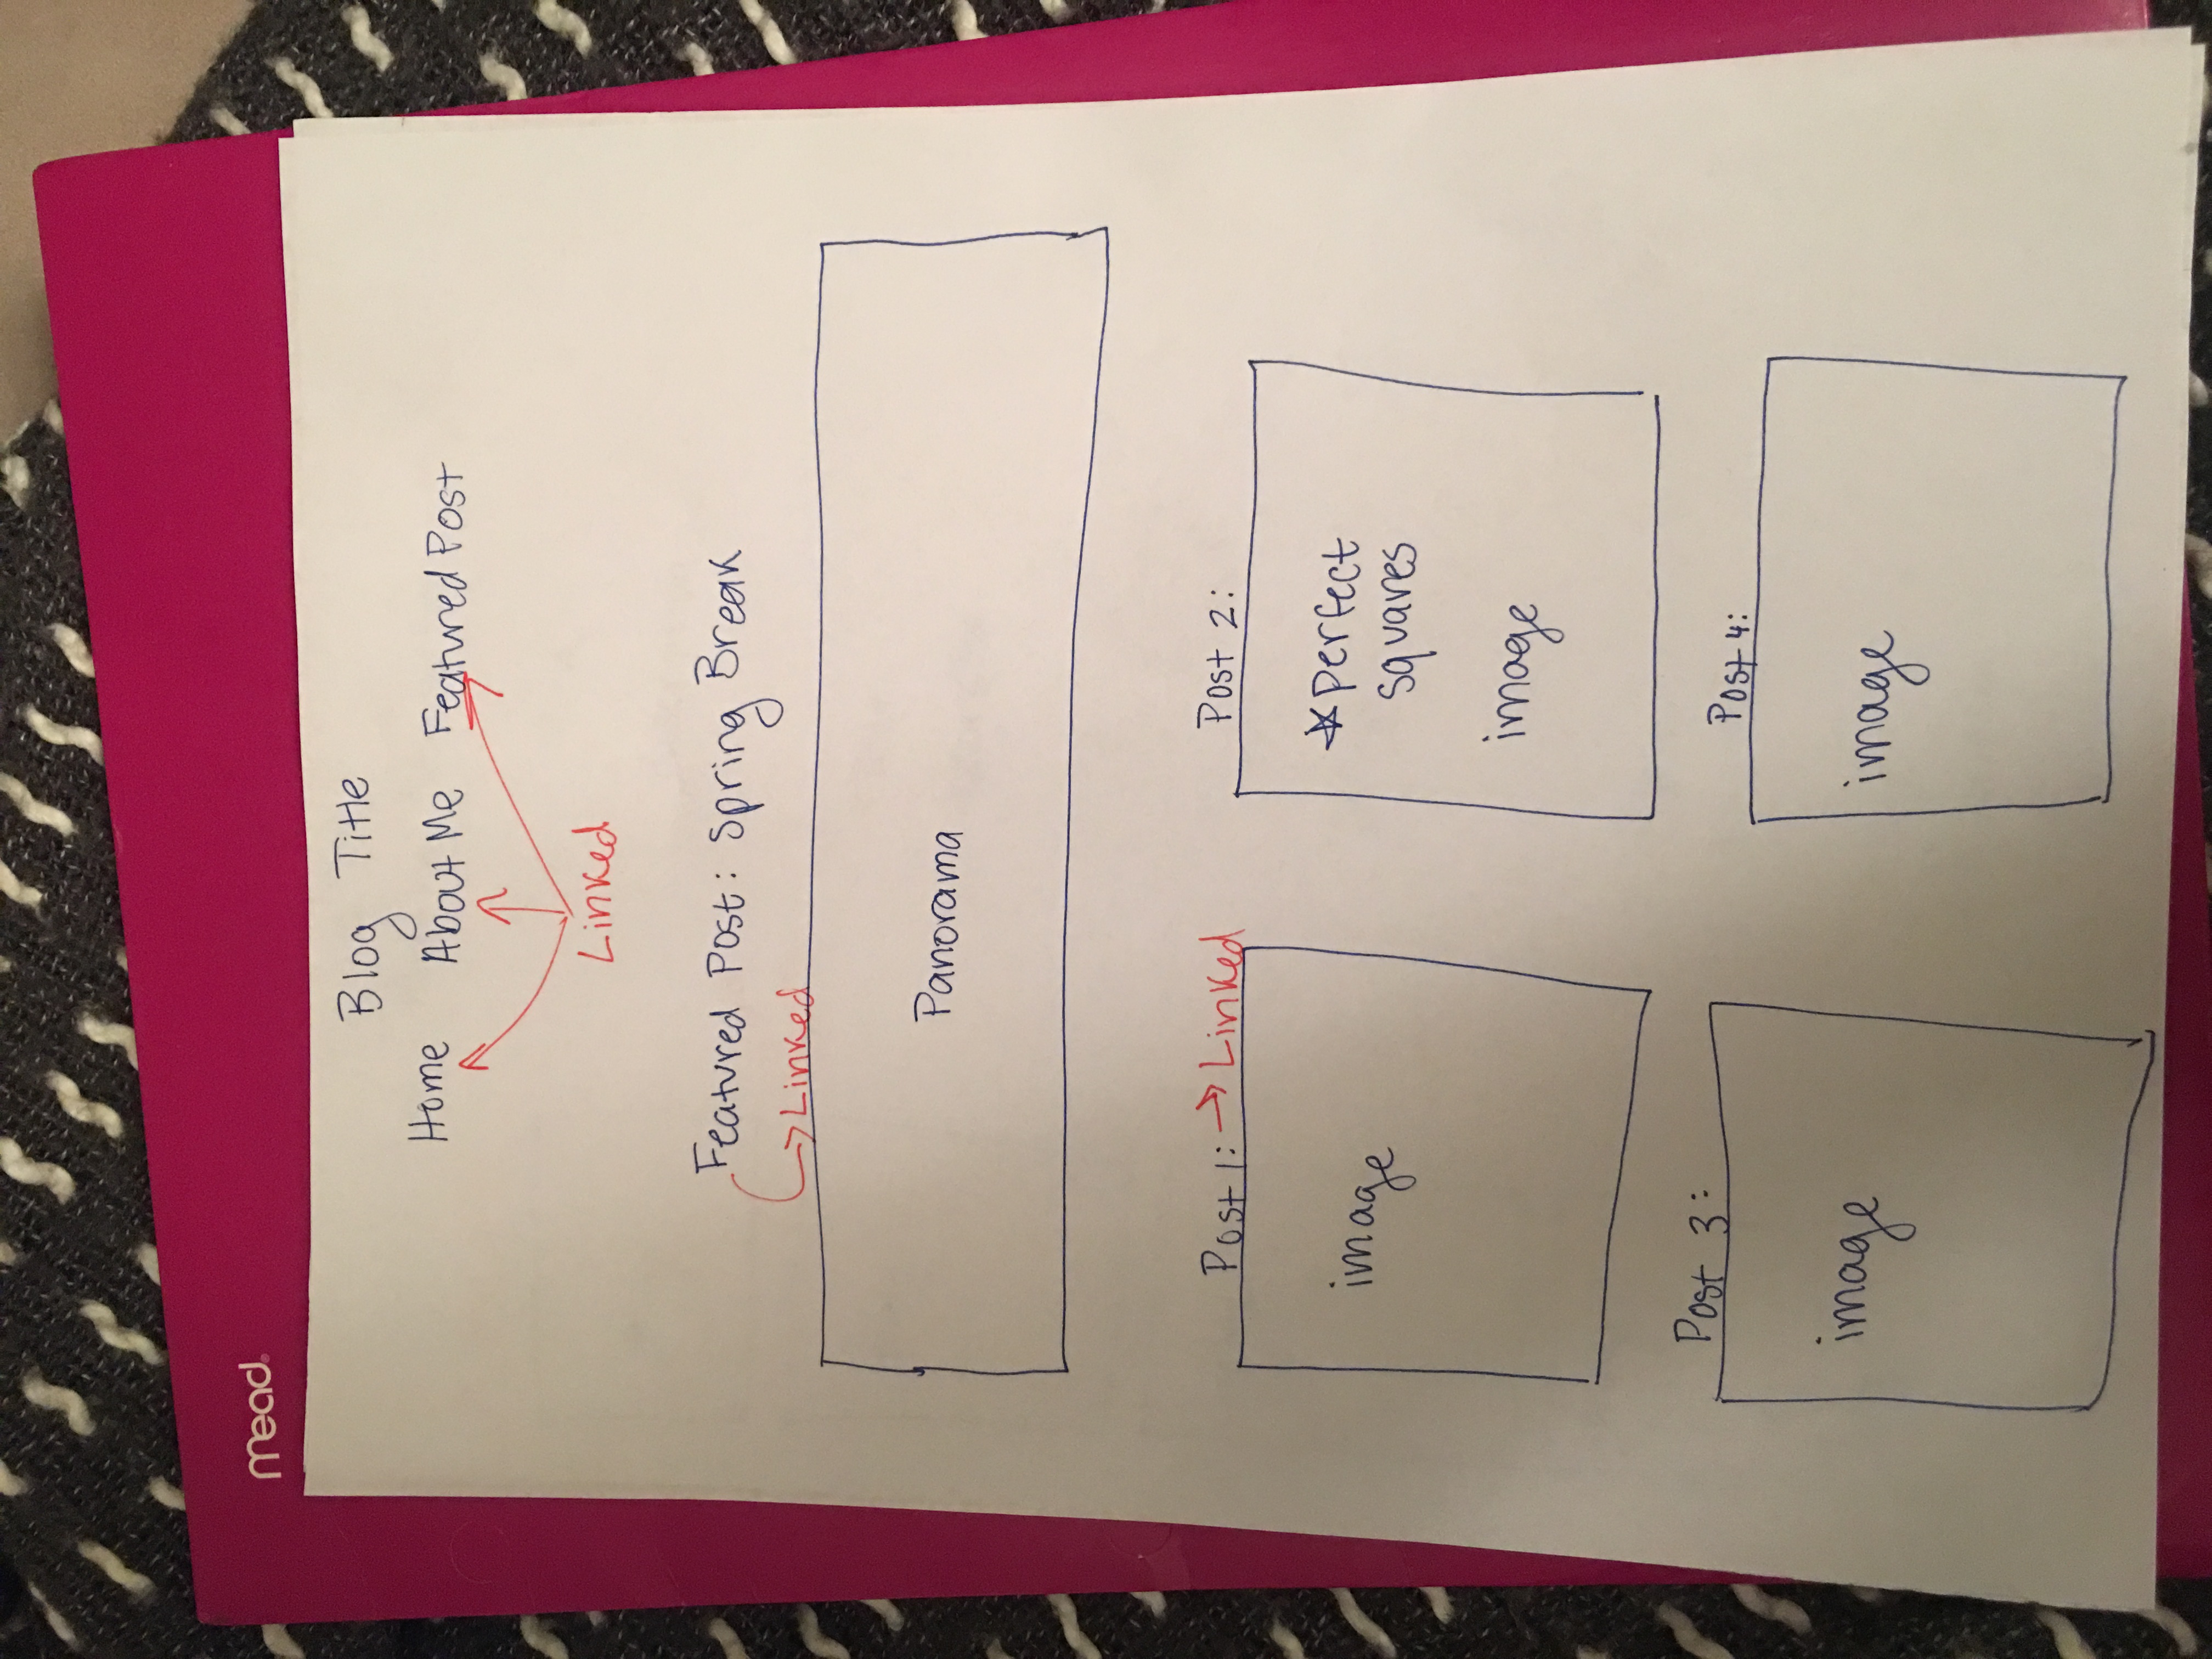 mead
Blog Title
Home About Me Featured Post
Linked
Featured Post: Spring Break
Linked
Panorama
Post 1: Linked
Post 2:
image
*perfect
squares
image
Post 3:
Post 4:
image
image